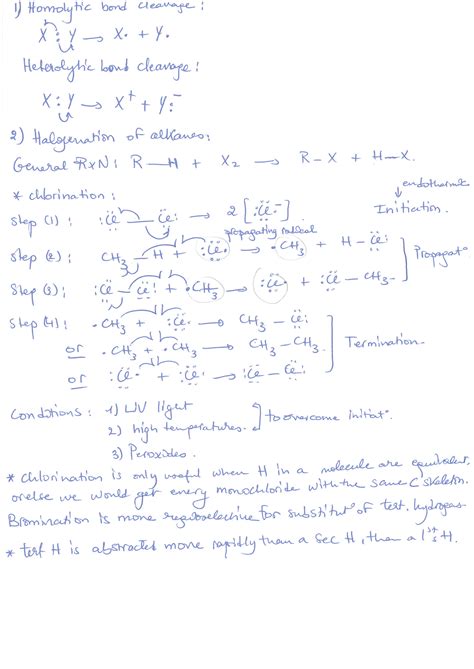 1) Homolytic bond cleavage:
X : Y → X• + Y•
Heterolytic bond cleavage:
X : Y → X⁺ + Y:⁻
2) Halogenation of alkanes:
General RxN: R — H + X₂ → R – X + H – X.
* chlorination:
endothermic
Step (1): :Cl — Cl: → 2 [:Cl•] Initiation.
propagating radical
Step (2): CH₃ – H + :Cl• → •CH₃ + H – Cl:
Propagat°
Step (3): :Cl – Cl: + •CH₃ → :Cl• + :Cl – CH₃
Step (4): •CH₃ + :Cl• → CH₃ – Cl:
or •CH₃ + •CH₃ → CH₃ – CH₃ Termination.
or :Cl• + •Cl: → :Cl – Cl:
Conditions: 1) UV light
2) high temperatures. to overcome initiat°.
3) Peroxides.
* chlorination is only useful when H in a molecule are equivalent,
orelse we would get every monochloride with the same C skeleton.
Bromination is more regioselective for substitut° of tert. hydrogens
* tert H is abstracted more rapidly than a sec H, than a 1° H.